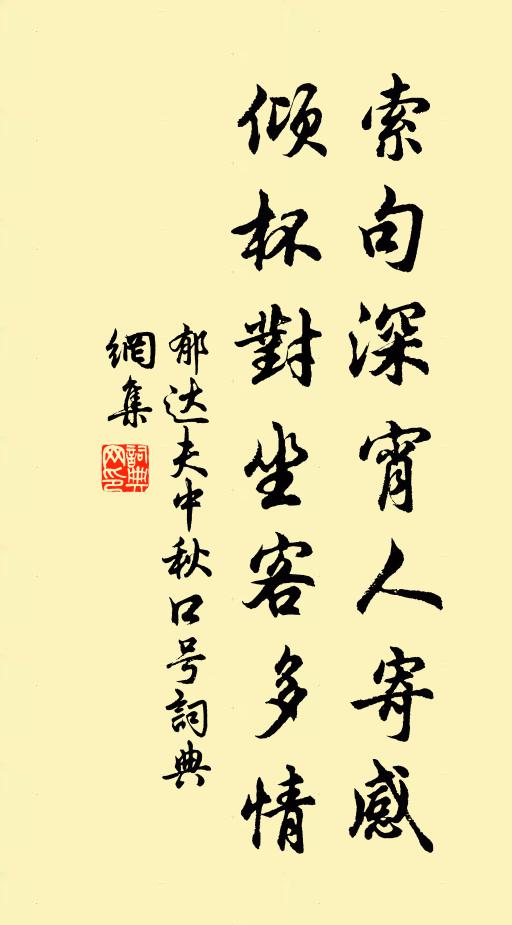 索句深宵人寄感
傾杯對坐客多情
郁达夫中秋口号詞典
網集
詞典
网印